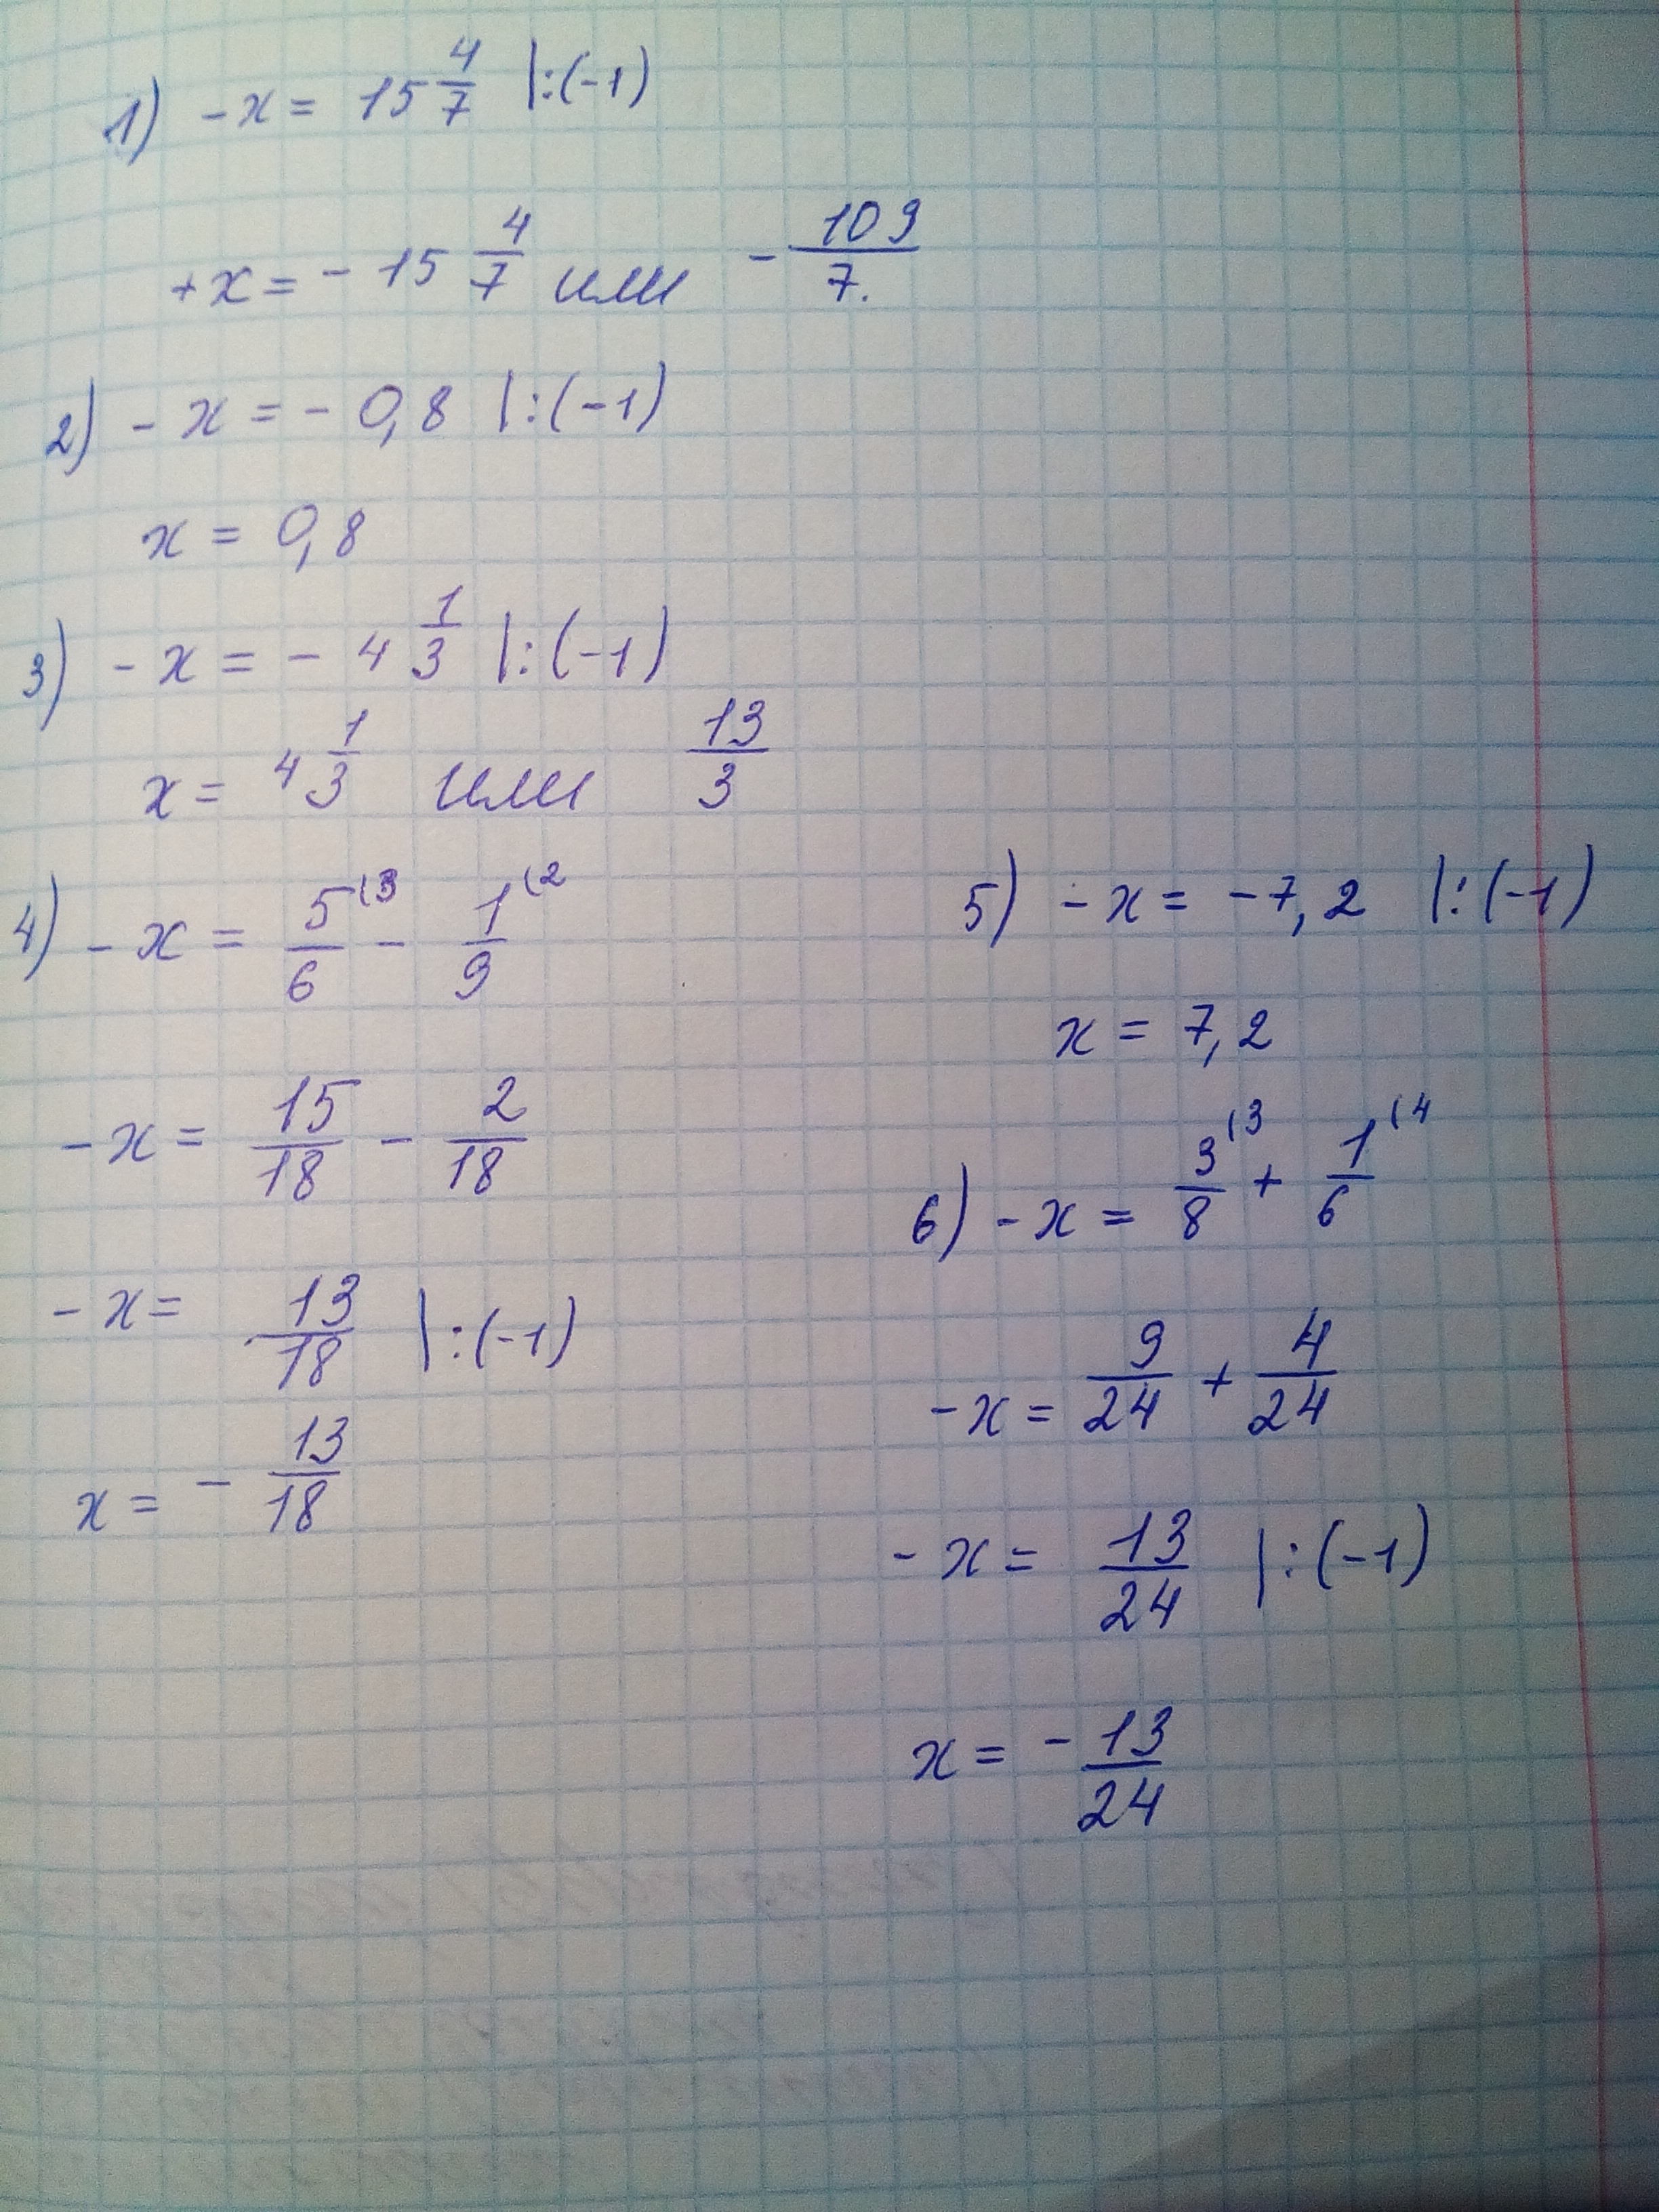 1) -x = 15 4/7 |:(-1)
+x = - 15 4/7 или - 109/7.
2) - x = - 0,8 |:(-1)
x = 0,8
3) - x = - 4 1/3 |:(-1)
x = 4 1/3 или 13/3
4) - x = 5/6 (3 - 1/9 (2
-x = 15/18 - 2/18
-x = 13/18 |:(-1)
x = - 13/18
5) -x = -7,2 |:(-1)
x = 7,2
6) -x = 3/8 (3 + 1/6 (4
-x = 9/24 + 4/24
- x = 13/24 |:(-1)
x = - 13/24